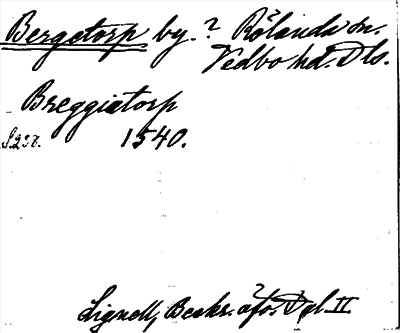 Bergstorp by.? Rölanda sn.
Vedbo hd. Dls.
Breggiatorp
S. 237. 1540.
Lignell, Beskr. öfv. Dal. II